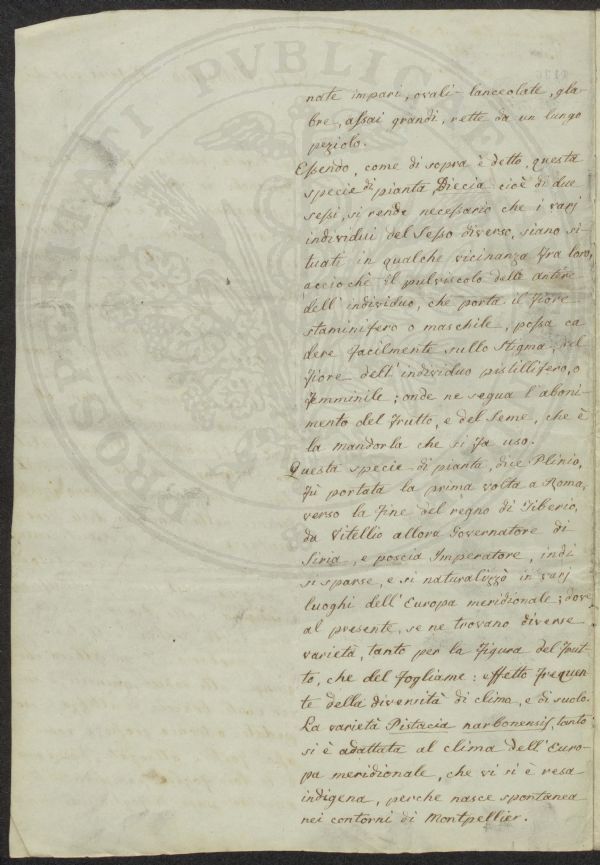 nate impari, ovali-lanceolate, gla-
bre, assai grandi, rette da un lungo
peziolo.
Essendo, come di sopra è detto, questa
specie di pianta Diecia cioè di due
sessi, si rende necessario che i varj
individui del Sesso diverso, siano si-
tuati in qualche vicinanza fra loro,
acciochè il pulviscolo delle antere
dell'individuo, che porta il fiore
staminifero o maschile, possa ca
dere facilmente sullo Stigma, del
fiore dell'individuo pistillifero, o
femminile; onde ne segua l'aboni-
mento del frutto, e del Seme, che è
la mandorla che si fa uso.
Questa specie di pianta, dice Plinio,
fù portata la prima volta a Roma,
verso la fine del regno di Tiberio,
da Vitellio allora Governatore di
Siria, e poscia Imperatore, indi
si sparse, e si naturalizzò in varj
luoghi dell'Europa meridionale; dove
al presente, se ne trovano diverse
varietà, tanto per la figura del frut-
to, che del fogliame: effetto frequen
te della diversità di clima, e di suolo.
La varietà Pistacia narbonensis, tanto
si è adattata al clima dell'Euro-
pa meridionale, che vi si è resa
indigena, perche nasce spontanea
nei contorni di Montpellier.
PROSPERITATI PUBLICAE